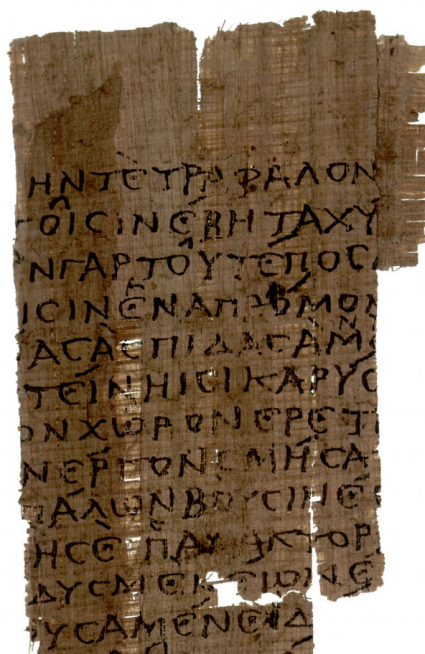 ΗΝΤΕΤΡΑΦΑΛΟΝ
ΤΟΙϹΙΝΕΒΗΤΑΧΥ
ΝΓΑΡΤΟΥΤΕΠΟϹ
ΙϹΙΝΕΝΑΠ ΟΜΟΝ
ΑϹΑϹΠΙΔΑϹΑΜ
ΤΕΙΝΗΙϹΙΚΑΡΥ
ΟΝΧΩΡΟΝΕΡΕΤ
ΝΕΡΓΟΝΕΜΗϹΑ
ΠΑΛΩΝΒΟΥϹΙΝΕ
ΗϹΕΠΑΥ ΚΤΟΡ
ΔΥϹΜΕ ΤΙΟΝΕ
ΥϹΑΜΕΝΕ Δ